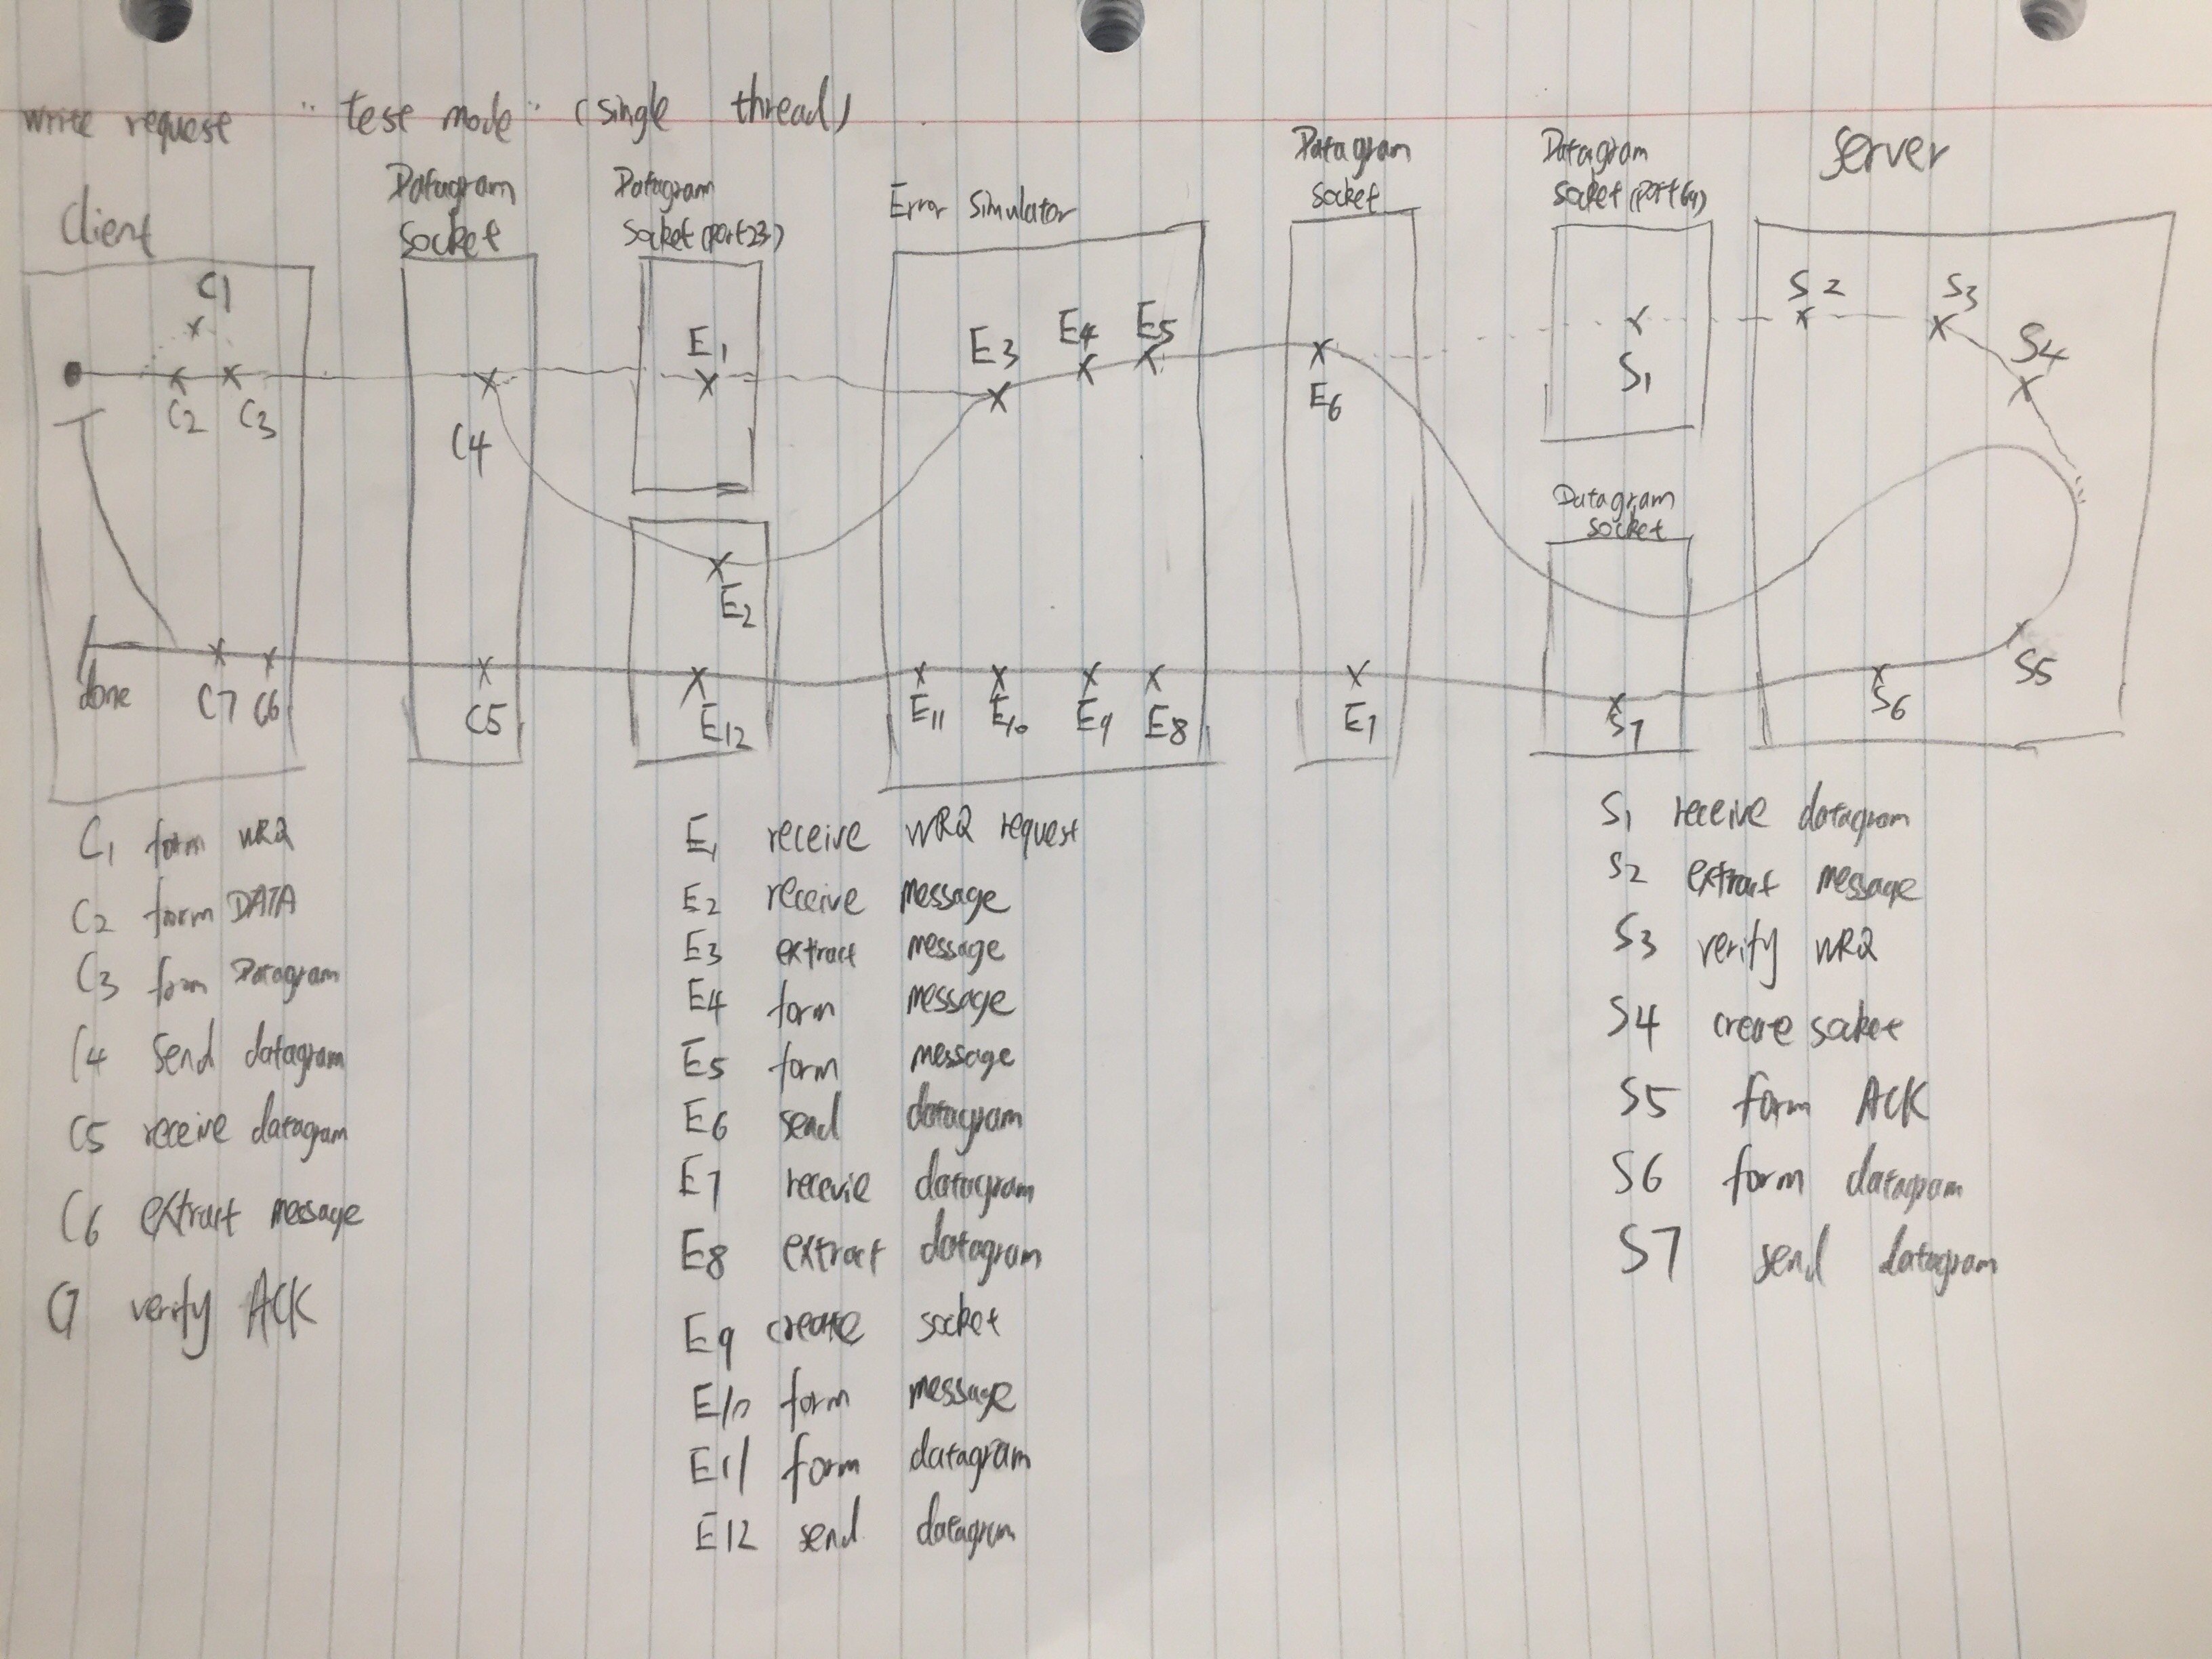 write request "test mode" (single thread)
Client
Datagram
Socket
Datagram
Socket (port 23)
Error
Simulator
Datagram
Socket
Datagram
Socket (port 69)
Server
C1
C2
C3
C4
E1
E3
E4
E5
E6
S1
S2
S3
S4
Datagram
Socket
E2
done
C7 C6
C5
E12
E11
E10
E9
E8
E7
S7
S6
S5
C1 form WRQ
C2 form DATA
C3 form Datagram
C4 send datagram
C5 receive datagram
C6 extract message
C7 verify ACK
E1 receive WRQ request
E2 receive message
E3 extract message
E4 form message
E5 form message
E6 send datagram
E7 recevie datagram
E8 extract datagram
E9 create socket
E10 form message
E11 form datagram
E12 send datagram
S1 receive datagram
S2 extract message
S3 verify WRQ
S4 create socket
S5 form ACK
S6 form datagram
S7 send datagram